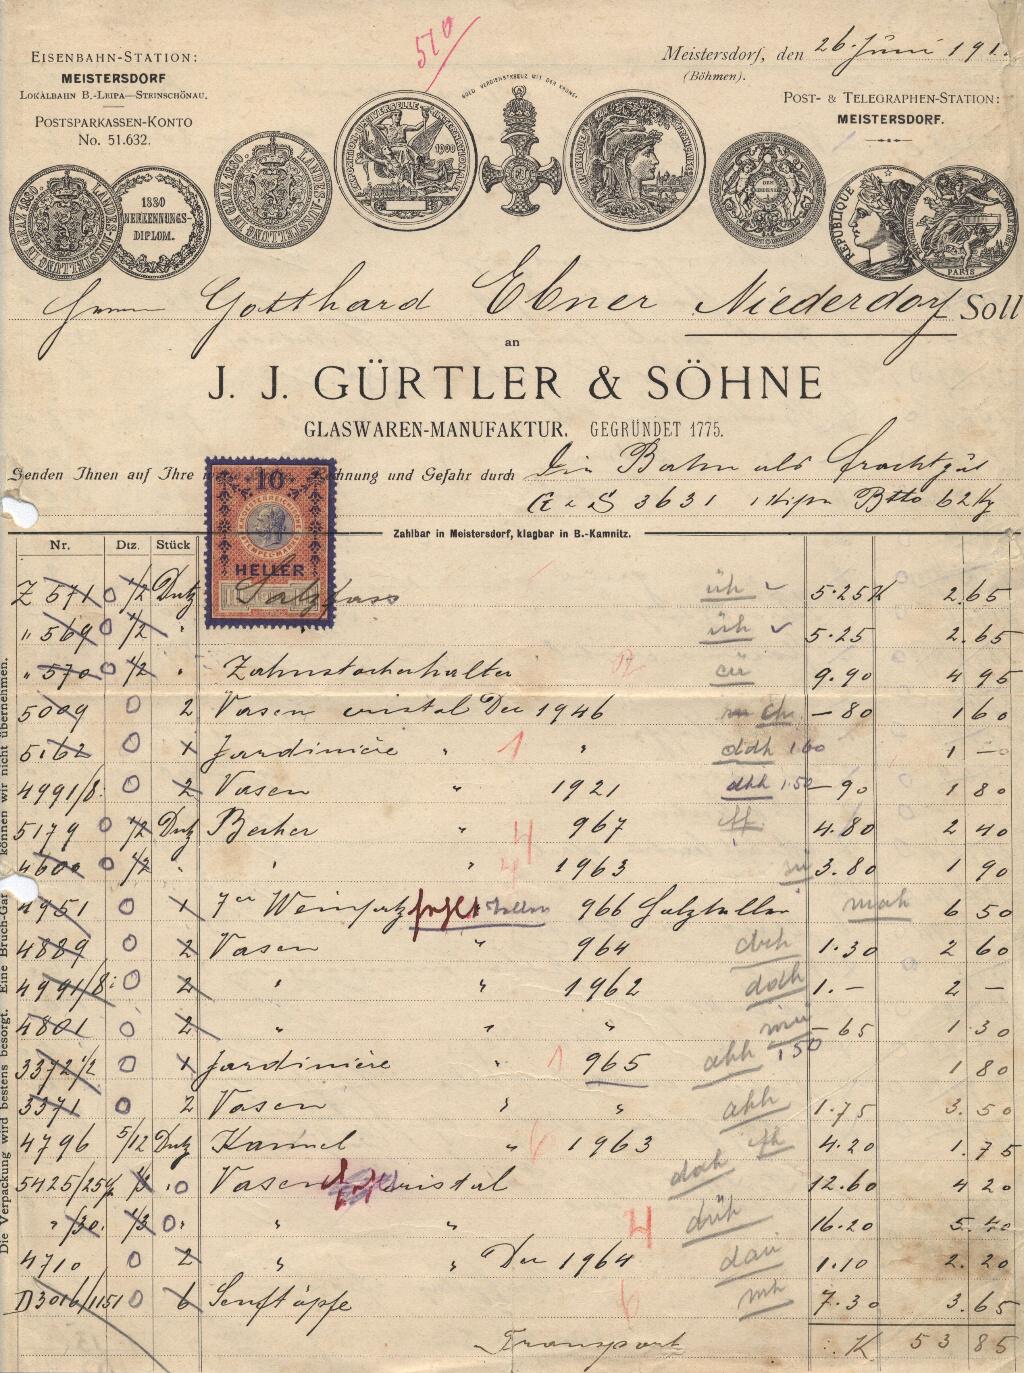 570
EISENBAHN-STATION:
MEISTERSDORF
LOKALBAHN B.-LEIPA—STEINSCHÖNAU.
POSTSPARKASSEN-KONTO
No. 51.632.
Meistersdorf, den 26. Juni 191
(Böhmen).
POST- & TELEGRAPHEN-STATION:
MEISTERSDORF.
GOLD. VERDIENSTKREUZ MIT DER KRONE.
1880
ANERKENNUNGS-
DIPLOM.
1900
REPUBLIQUE
PARIS
Herrn Gotthard Ebner Niederdorf Soll
an
J. J. GÜRTLER & SÖHNE
GLASWAREN-MANUFAKTUR. GEGRÜNDET 1775.
Senden Ihnen auf Ihre hnung und Gefahr durch die Bahn als Frachtgut
G & S 3631 1 Kiste Btto 62 Kg
10
HELLER
Zahlbar in Meistersdorf, klagbar in B.-Kamnitz.
Nr. Dtz. Stück
Z 571 0 1/2 Dutz Salzfass üh 5.25 K 2.65
" 569 0 1/2 " üh 5.25 2.65
" 570 0 1/2 " Zahnstocherhalter 9.90 4 95
5009 0 2 Vasen cristal Dec 1946 ch — 80 1 60
5162 0 1 Jardiniére " 1 " ddh 1.60 1 —
4991/8 0 2 Vasen " 1921 dhh 1.50 — 90 1 80
5179 0 1/2 Dutz Becher " 4 967 4.80 2 40
4600 0 1/2 " " " 4 1963 3.80 1 90
4951 0 1 7er Weinsatz fehlt 966 mah 6 50
4889 0 2 Vasen " 964 dch 1.30 2 60
4991/8 0 2 " " 1962 doch 1.— 2 —
4801 0 2 " " " — 65 1 30
3372 1/2 0 1 Jardiniére " 1 965 ahh 1.50 1 80
3371 0 2 Vasen " " ahh 1.75 3.50
4796 5/12 Dutz " 6 1963 4.20 1.75
5425/25 1/3 " 0 Vasen cristal doh 12.60 4 20
" /30. 1/3 0 " " " 4 düh 16.20 5.40
4710 0 2 " " Dec 1964 1.10 2.20
D3016/1151 0 6 Senftöpfe 6 7.30 3.65
Transport K 53 85
Die Verpackung wird bestens besorgt. Eine Bruch-Gar können wir nicht übernehmen.